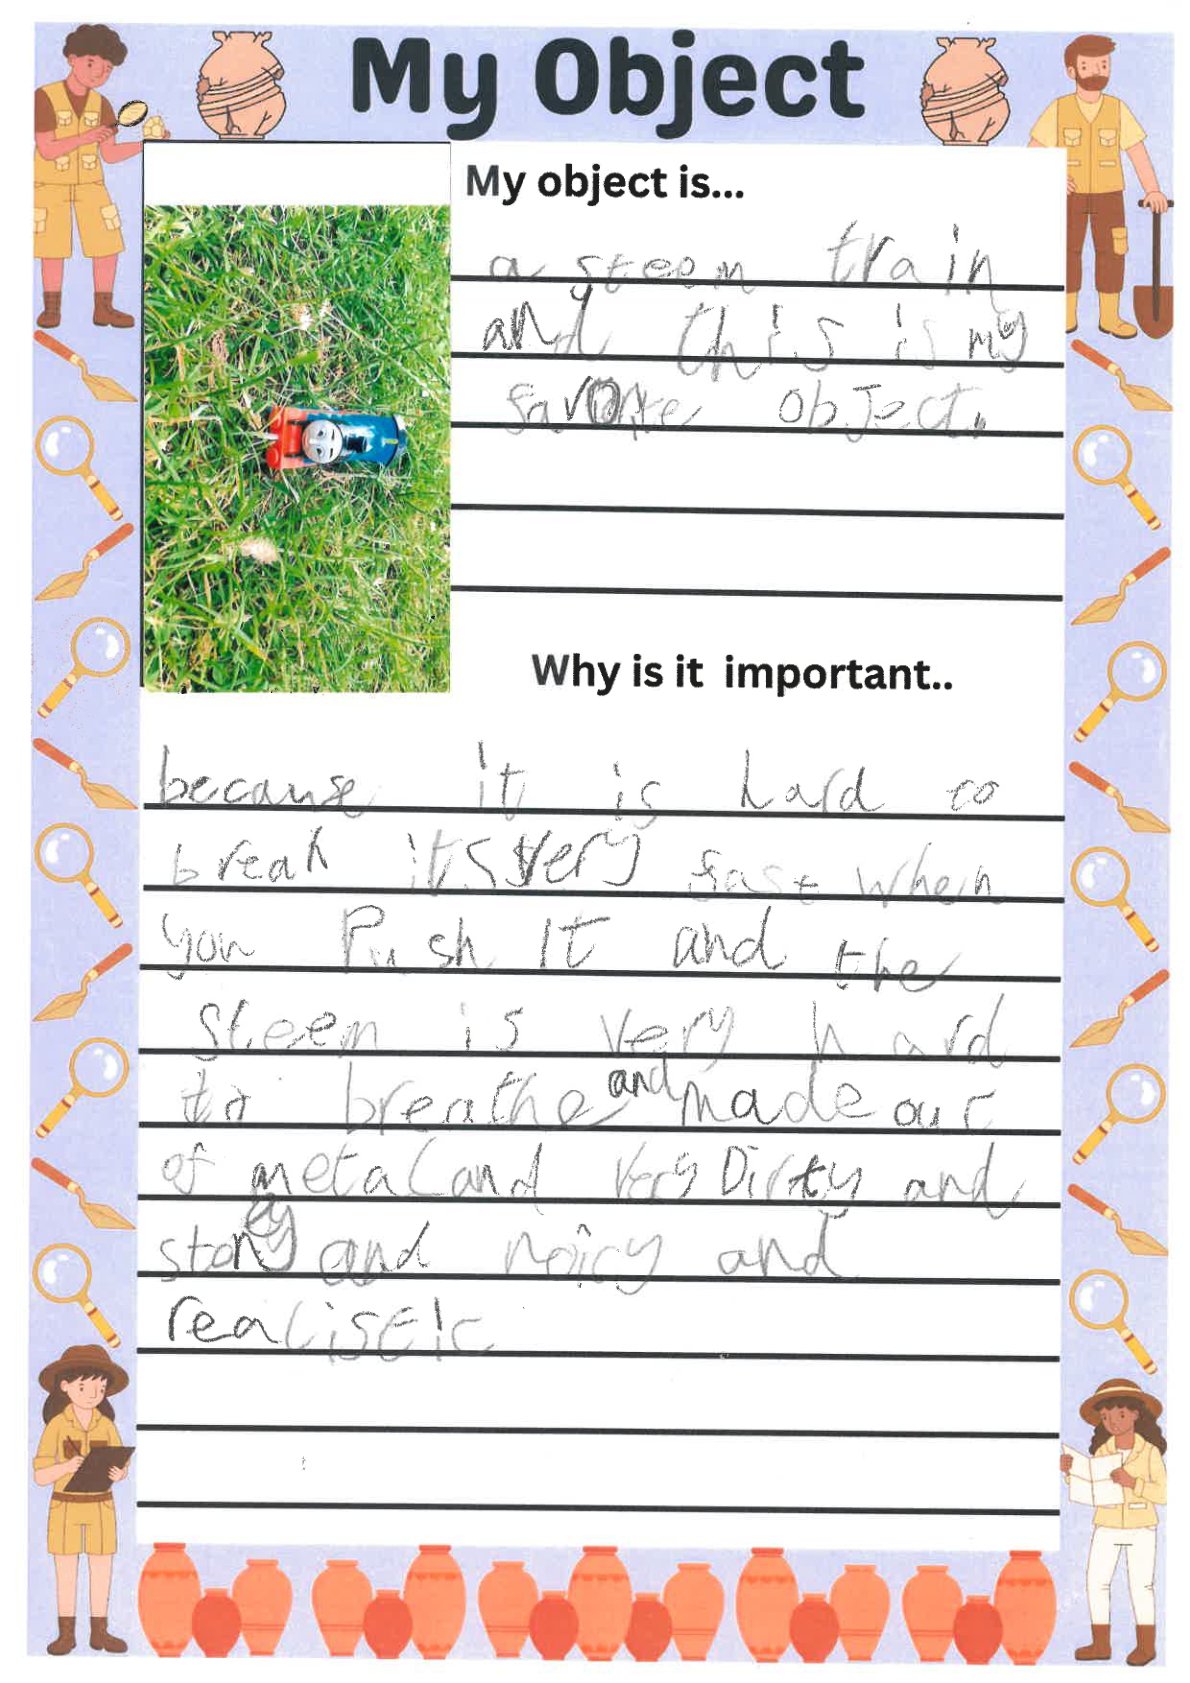 My Object
My object is...
a steem train
and this is my
favorite object.
Why is it important..
because it is hard to
break its very fast when
you Push It and the
steem is very hard
to breathe and made out
of metal and very Dirty and
and noicy and
realistic